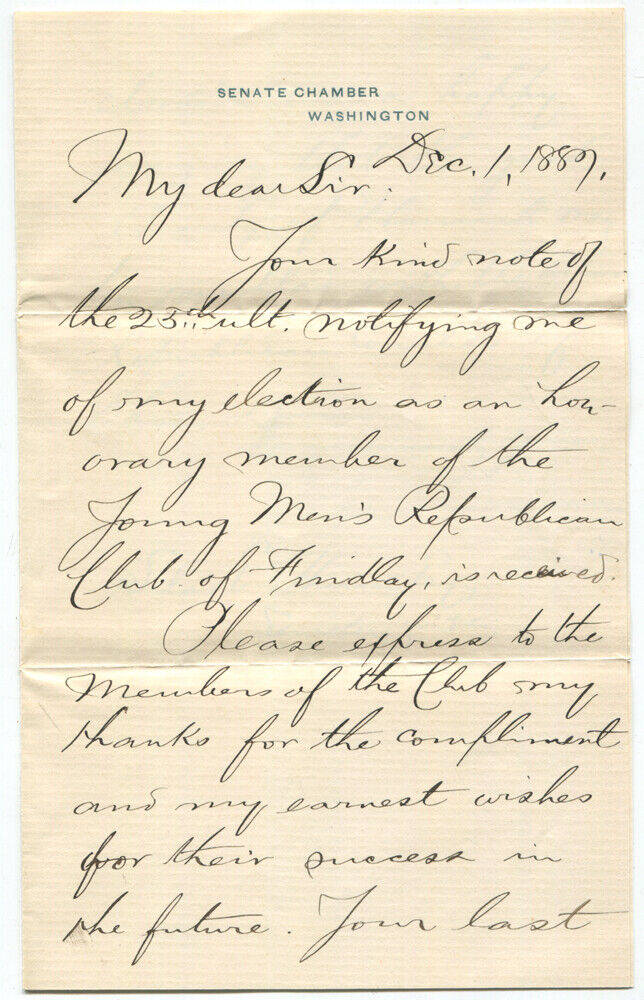 SENATE CHAMBER
WASHINGTON
Dec. 1, 1887.
My dear Sir:
Your kind note of
the 25th ult. notifying me
of my election as an hon-
orary member of the
Young Men's Republican
Club of Findlay, is received.
Please express to the
members of the Club my
thanks for the compliment
and my earnest wishes
for their success in
the future. Your last